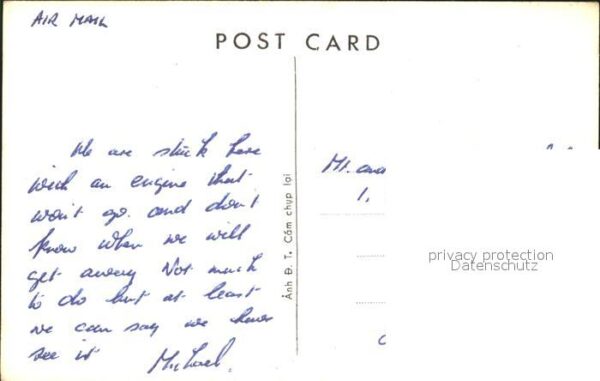 AIR MAIL
POST CARD
We are stuck here
with an engine that
won't go. and don't
know when we will
get away Not much
to do but at least
we can say we have
see it Michael.
Ảnh Đ. T. Cấm chụp lại
Mr. and
1,
privacy protection
Datenschutz